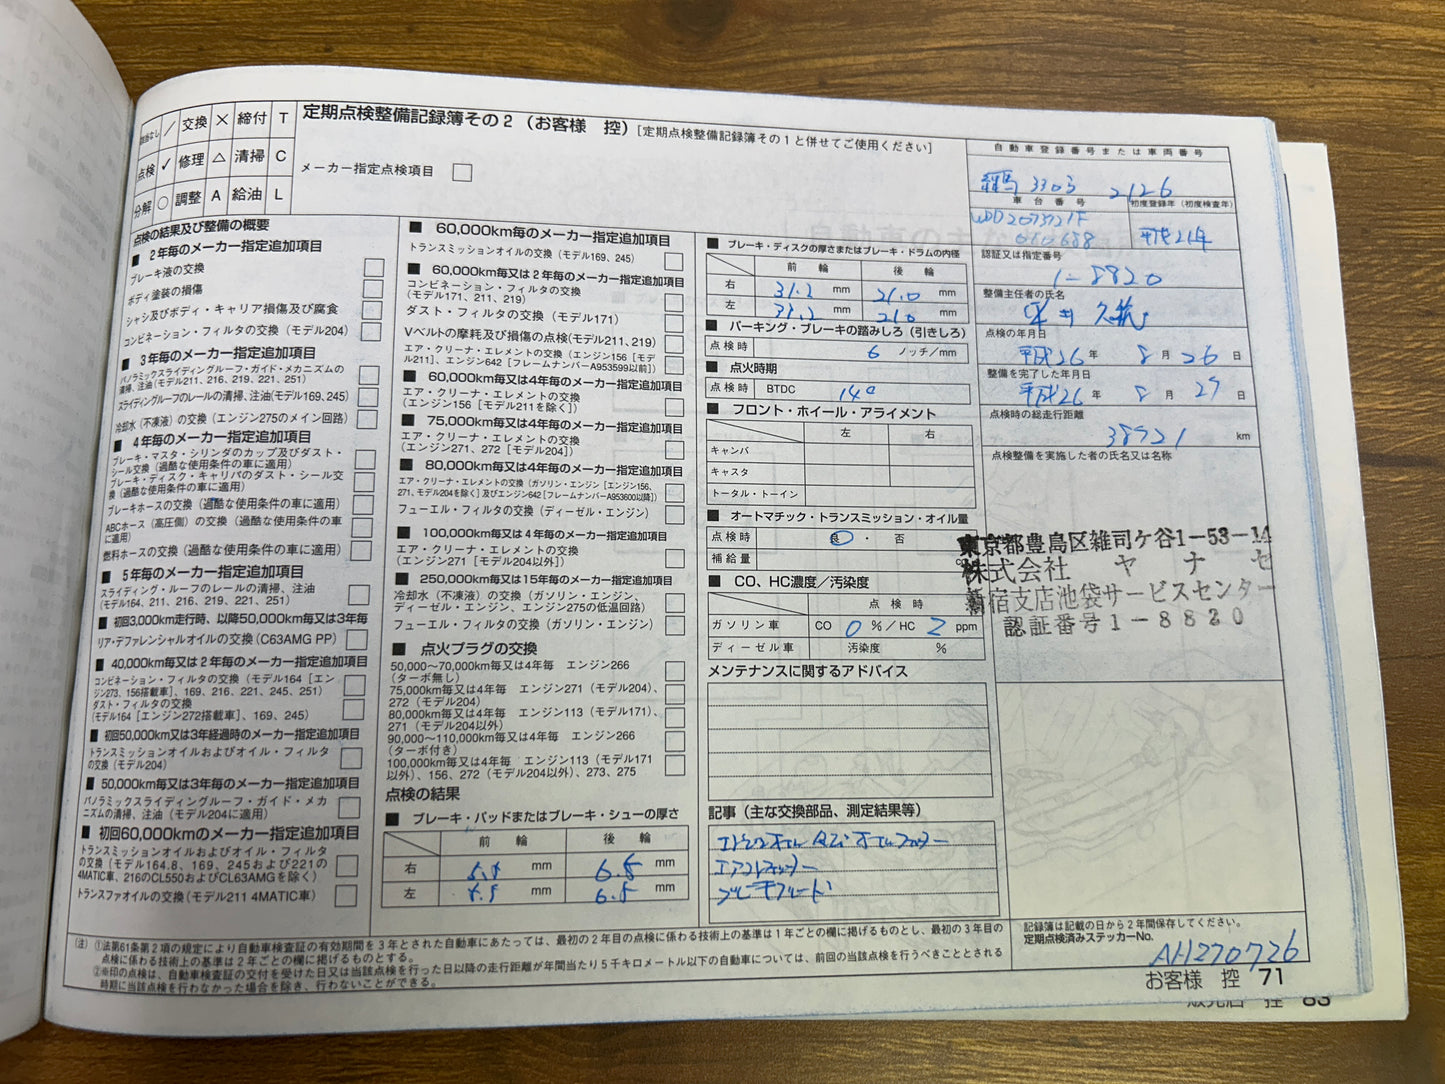 交換 × 締付 T
点検 ✓ 修理 △ 清掃 C
分解 ○ 調整 A 給油 L
定期点検整備記録簿その2(お客様 控)[定期点検整備記録簿その1と併せてご使用ください]
メーカー指定点検項目
点検の結果及び整備の概要
■ 2年毎のメーカー指定追加項目
ブレーキ液の交換
ボディ塗装の損傷
シャシ及びボディ・キャリア損傷及び腐食
コンビネーション・フィルタの交換(モデル204)
■ 3年毎のメーカー指定追加項目
パノラミックスライディングルーフ・ガイド・メカニズムの
清掃、注油(モデル211、216、219、221、251)
スライディングルーフのレールの清掃、注油(モデル169、245)
冷却水(不凍液)の交換(エンジン275のメイン回路)
■ 4年毎のメーカー指定追加項目
ブレーキ・マスタ・シリンダのカップ及びダスト・
シール交換(過酷な使用条件の車に適用)
ブレーキ・ディスク・キャリパのダスト・シール交
換(過酷な使用条件の車に適用)
ブレーキホースの交換(過酷な使用条件の車に適用)
ABCホース(高圧側)の交換(過酷な使用条件の車
に適用)
燃料ホースの交換(過酷な使用条件の車に適用)
■ 5年毎のメーカー指定追加項目
スライディング・ルーフのレールの清掃、注油
(モデル164、211、216、219、221、251)
■ 初回3,000km走行時、以降50,000km毎又は3年毎
リア・デファレンシャルオイルの交換(C63AMG PP)
■ 40,000km毎又は2年毎のメーカー指定追加項目
コンビネーション・フィルタの交換(モデル164[エン
ジン273、156搭載車]、169、216、221、245、251)
ダスト・フィルタの交換
(モデル164[エンジン272搭載車]、169、245)
■ 初回50,000km又は3年経過時のメーカー指定追加項目
トランスミッションオイルおよびオイル・フィルタ
の交換(モデル204)
■ 50,000km毎又は3年毎のメーカー指定追加項目
パノラミックスライディングルーフ・ガイド・メカ
ニズムの清掃、注油(モデル204に適用)
■ 初回60,000kmのメーカー指定追加項目
トランスミッションオイルおよびオイル・フィルタ
の交換(モデル164.8、169、245および221の
4MATIC車、216のCL550およびCL63AMGを除く)
トランスファオイルの交換(モデル211 4MATIC車)
■ 60,000km毎のメーカー指定追加項目
トランスミッションオイルの交換(モデル169、245)
■ 60,000km毎又は2年毎のメーカー指定追加項目
コンビネーション・フィルタの交換
(モデル171、211、219)
ダスト・フィルタの交換(モデル171)
Vベルトの摩耗及び損傷の点検(モデル211、219)
エア・クリーナ・エレメントの交換(エンジン156[モデ
ル211]、エンジン642[フレームナンバーA953599以前])
■ 60,000km毎又は4年毎のメーカー指定追加項目
エア・クリーナ・エレメントの交換
(エンジン156[モデル211を除く])
■ 75,000km毎又は4年毎のメーカー指定追加項目
エア・クリーナ・エレメントの交換
(エンジン271、272[モデル204])
■ 80,000km毎又は4年毎のメーカー指定追加項目
エア・クリーナ・エレメントの交換(ガソリン・エンジン[エンジン156、
271、モデル204を除く]及びエンジン642[フレームナンバーA953600以降])
フューエル・フィルタの交換(ディーゼル・エンジン)
■ 100,000km毎又は4年毎のメーカー指定追加項目
エア・クリーナ・エレメントの交換
(エンジン271[モデル204以外])
■ 250,000km毎又は15年毎のメーカー指定追加項目
冷却水(不凍液)の交換(ガソリン・エンジン、
ディーゼル・エンジン、エンジン275の低温回路)
フューエル・フィルタの交換(ガソリン・エンジン)
■ 点火プラグの交換
50,000〜70,000km毎又は4年毎 エンジン266
(ターボ無し)
75,000km毎又は4年毎 エンジン271(モデル204)、
272(モデル204)
80,000km毎又は4年毎 エンジン113(モデル171)、
271(モデル204以外)
90,000〜110,000km毎又は4年毎 エンジン266
(ターボ付き)
100,000km毎又は4年毎 エンジン113(モデル171
以外)、156、272(モデル204以外)、273、275
点検の結果
■ ブレーキ・パッドまたはブレーキ・シューの厚さ
前 輪 後 輪
右 mm 6.5 mm
左 mm 6.5 mm
■ ブレーキ・ディスクの厚さまたはブレーキ・ドラムの内径
前 輪 後 輪
右 31.2 mm 21.0 mm
左 31.2 mm 21.0 mm
■ パーキング・ブレーキの踏みしろ(引きしろ)
点検時 6 ノッチ/mm
■ 点火時期
点検時 BTDC 14°
■ フロント・ホイール・アライメント
左 右
キャンバ
キャスタ
トータル・トーイン
■ オートマチック・トランスミッション・オイル量
点検時 良 ・ 否
補給量
■ CO、HC濃度/汚染度
点 検 時
ガソリン車 CO 0 %/HC 2 ppm
ディーゼル車 汚染度 %
メンテナンスに関するアドバイス
記事(主な交換部品、測定結果等)
エンジンオイル 及び オイルフィルター
エアコンフィルター
ブレーキフルード
自動車登録番号または車両番号
練馬 330 ろ 2126
車台番号 初度登録年(初度検査年)
WDD2073721F
010688 平成21年
認証又は指定番号
1-8820
整備主任者の氏名
点検の年月日
平成26 年 8 月 26 日
整備を完了した年月日
平成26 年 8 月 27 日
点検時の総走行距離
38721 km
点検整備を実施した者の氏名又は名称
東京都豊島区雑司ケ谷1-53-14
株式会社 ヤナセ
新宿支店池袋サービスセンター
認証番号1-8820
(注)①法第61条第2項の規定により自動車検査証の有効期間を3年とされた自動車にあたっては、最初の2年目の点検に係わる技術上の基準は1年ごとの欄に掲げるものとし、最初の3年目の
点検に係わる技術上の基準は2年ごとの欄に掲げるものとする。
②※印の点検は、自動車検査証の交付を受けた日又は当該点検を行った日以降の走行距離が年間当たり5千キロメートル以下の自動車については、前回の当該点検を行うべきこととされる
時期に当該点検を行わなかった場合を除き、行わないことができる。
記録簿は記載の日から2年間保存してください。
定期点検済みステッカーNo.
AH270726
お客様 控 71
販売店 控 83